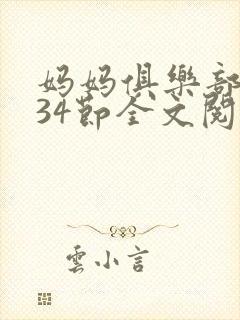 妈妈俱樂部
34節全文閱
雲小言